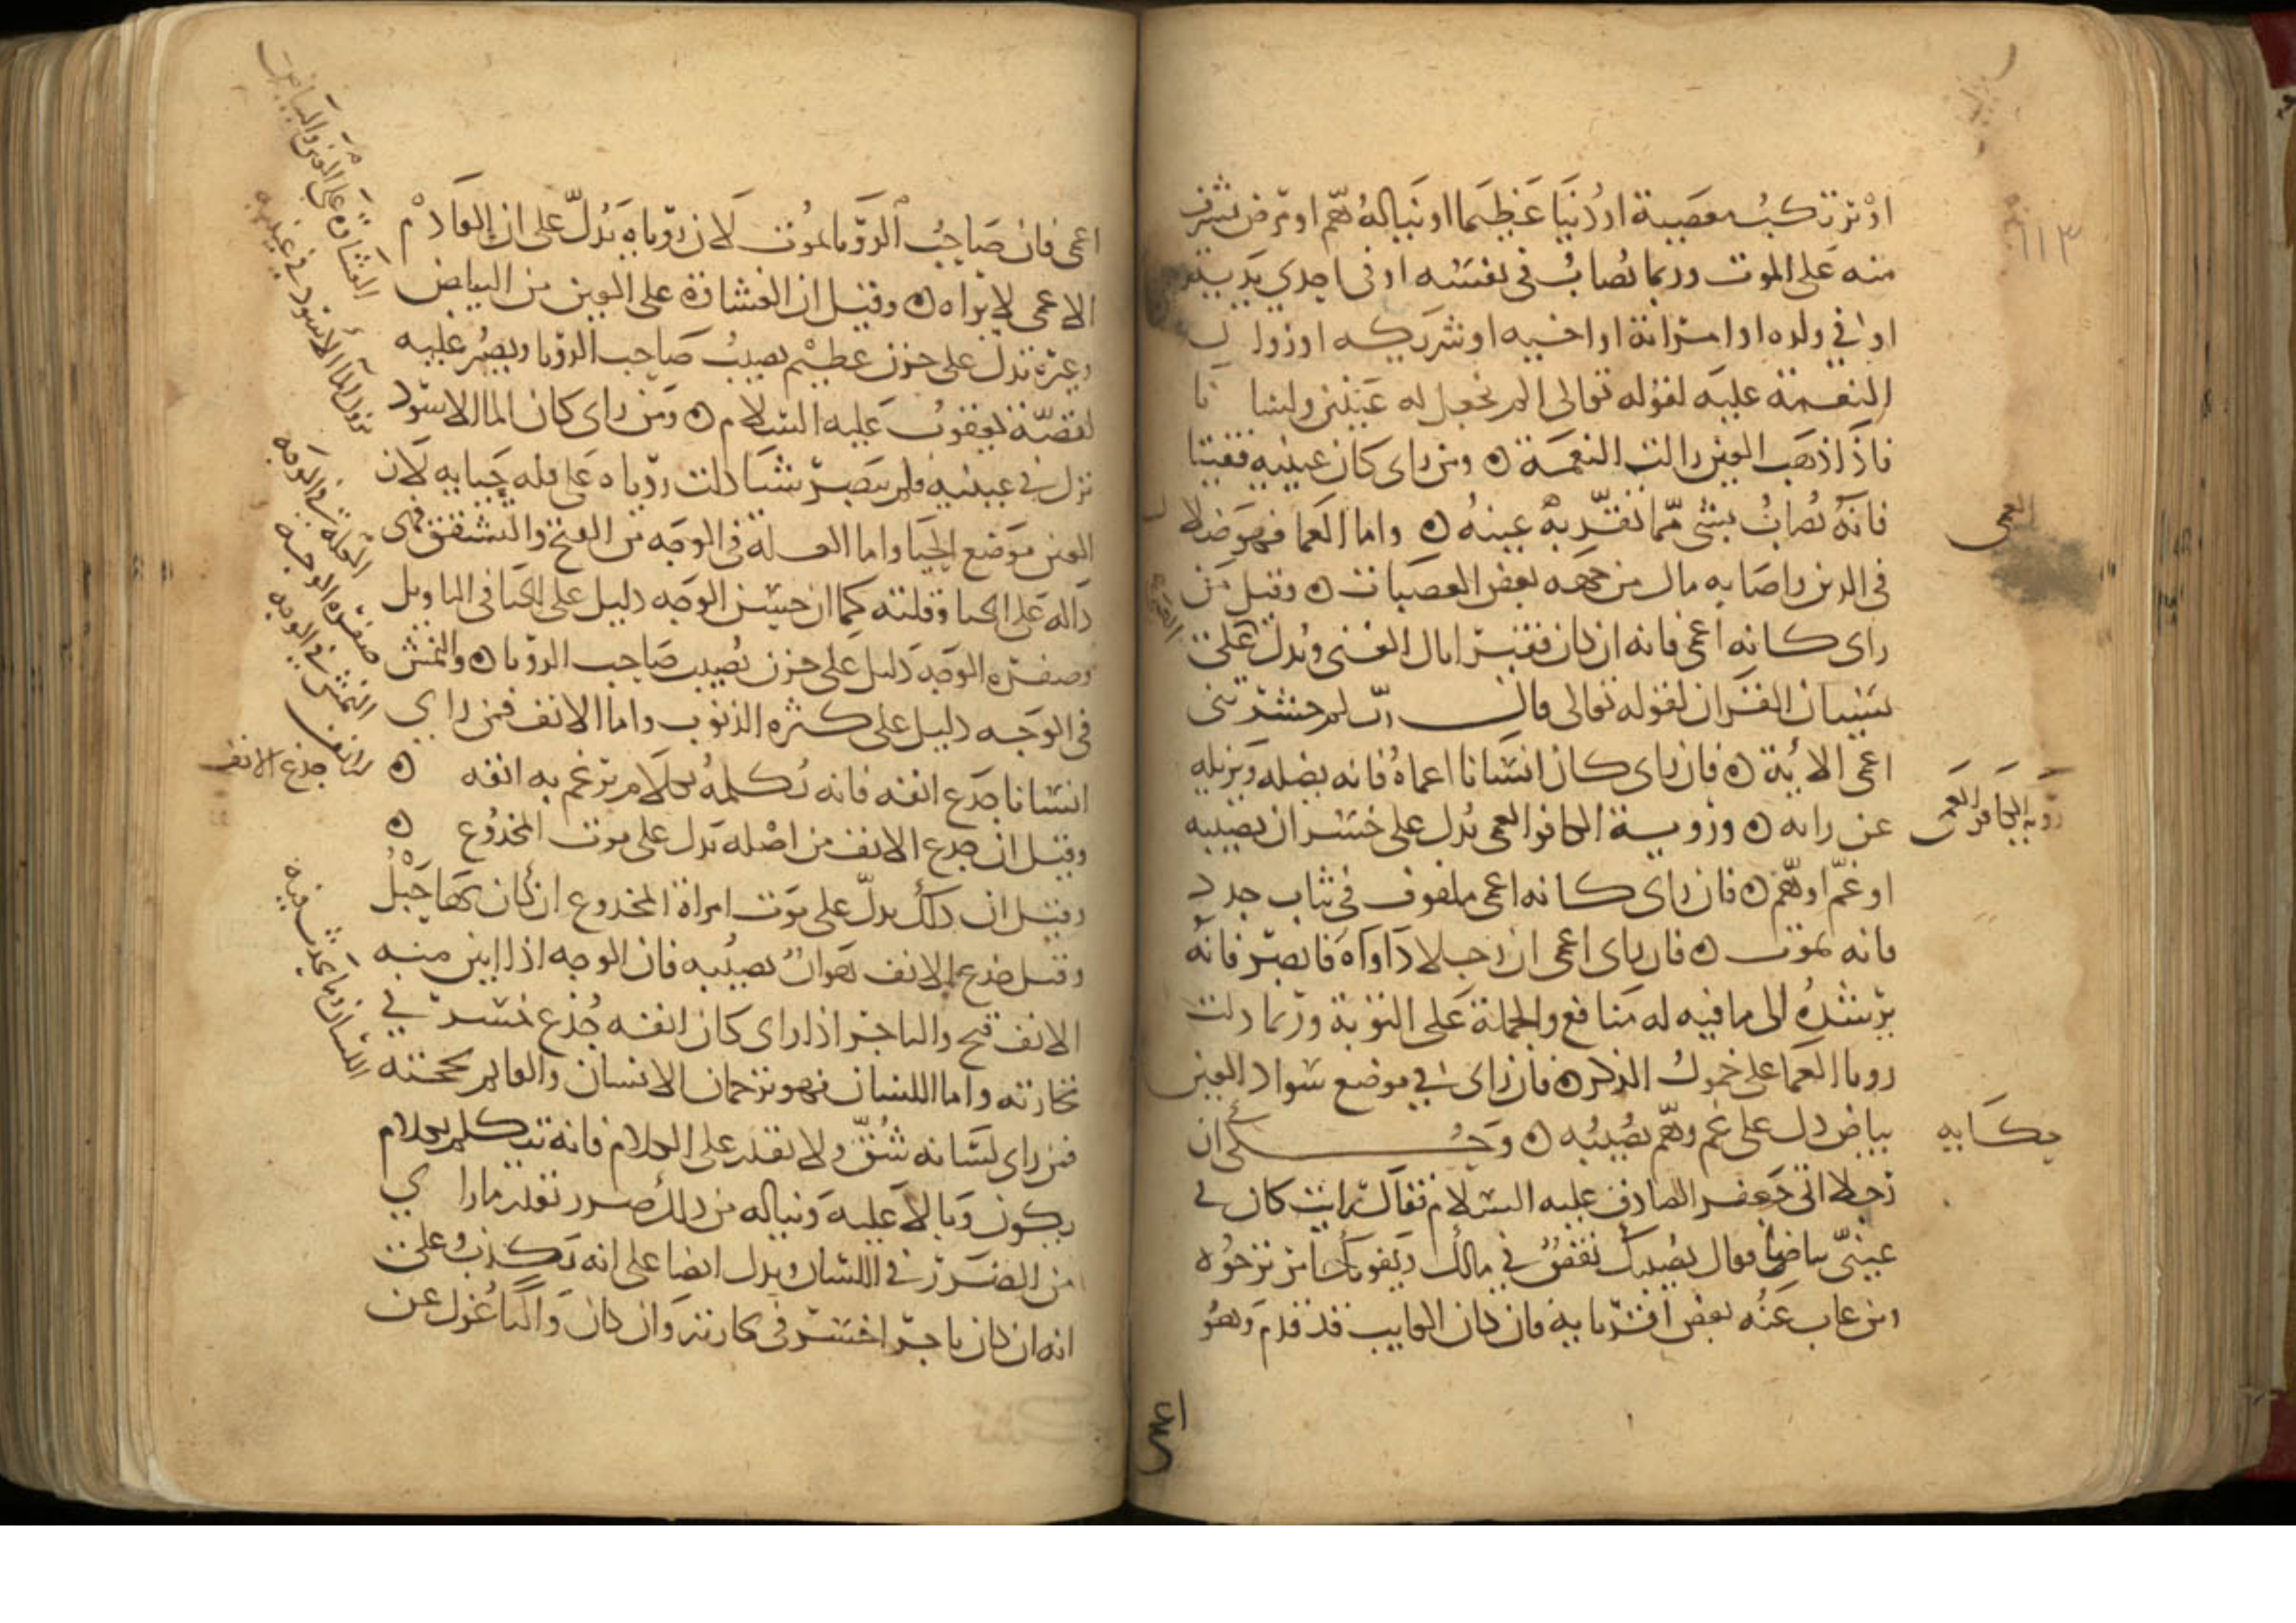 او يرتكب معصية او ذنبا عظيما او يناله هم او مرض يشرف
منه على الموت وربما يصاب في نفسه او في احدي يديه
او في ولده او امراته او اخيه او شريكه او زوال
النعمة عليه لقوله تعالى الم نجعل له عينين ولسانا
فاذا ذهب العين زالت النعمة ومن راى كان عينيه فقيتا
فانه يصاب بشي مما تقر به عينه واما العما فهو ضلال
العمى
في الدين واصابه مال من جهه بعض العصبات وقيل من
راى كانه اعمى فانه ان كان فقيرا نال الغنى ويدل على
نسيان القران لقوله تعالى قال رب لم حشرتني
اعمى الاية فان راى كان انسانا اعماه فانه يضله ويزيله
عن رايه وروية الكافر العمى يدل على خسران يصيبه
روية الكافر العمى
او غم او هم فان راى كانه اعمى ملفوف في ثياب جدد
فانه يموت فان راى اعمى ان رجلا داواه فابصر فانه
يرشده الى ما فيه له منافع والجملة على التوبة وربما دلت
رويا العما على خمول الذكر فان راى في موضع سواد العين
بياض دل على غم وهم يصيبه وحكي ان
حكايه
رجلا اتى جعفر الصادق عليه السلام فقال رايت كان في
عيني بياضا فقال يصيبك نقص في مالك ويفوتك امر ترجوه
ومن غاب عنه بعض اقربايه فان كان الغايب قد قدم وهو
اعمى
اعمى فان صاحب الرويا يموت لان روياه يدل على ان القادم
منه
الاعمى لا يراه وقيل ان الغشاوة على العين من البياض
الغشاوة على العين والبياض
وغيره تدل على حزن عظيم يصيب صاحب الرويا ويصبر عليه
لقصة يعقوب عليه السلام ومن راى كان الما الاسود
نزول الما الاسود في عينيه
نزل في عينيه فلم يبصر شيا دلت روياه على قله حيايه لان
العين موضع الحيا واما العلة في الوجه من القبح والتشقق فهي
العلة في الوجه
دالة على الحيا وقلته كما ان حسن الوجه دليل على الحيا في التاويل
صفره الوجه
وصفره الوجه دليل على حزن يصيب صاحب الرويا والنمش
النمش في الوجه
في الوجه دليل على كثره الذنوب واما الانف فمن راي
الانف
انسانا جدع انفه فانه يكلمه بكلام يرغم به انفه
جدع الانف
وقيل ان جدع الانف من اصله يدل على موت المجدوع
وقيل ان ذلك يدل على موت امراة المجدوع ان كان بها حبل
وقيل جدع الانف هوان يصيبه فان الوجه اذا ابين منه
الانف قبح والتاجر اذا راى كان انفه جدع خسر في
تجارته واما اللسان فهو ترجمان الانسان والقايم بحجته
اللسان وما يحدث فيه
فمن راى لسانه شق ولا يقدر على الكلام فانه يتكلم بكلام
يكون وبالا عليه ويناله من ذلك ضرر بقدر ما راى
من الضرر في اللسان ويدل ايضا على انه يكذب وعلى
انه ان كان تاجرا خسر في تجارته وان كان واليا عزل عن